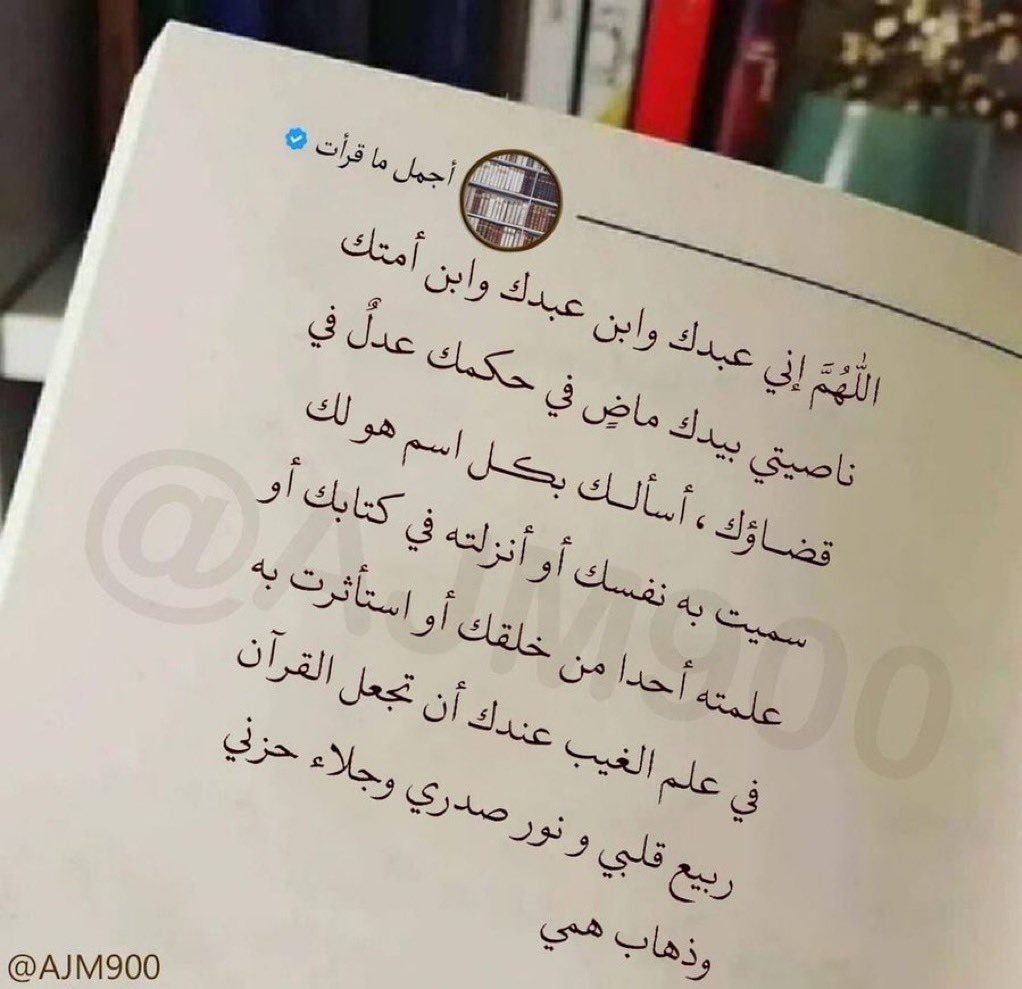 أجمل ما قرأت
اللّٰهُمَّ إني عبدك وابن عبدك وابن أمتك
ناصيتي بيدك ماضٍ في حكمك عدلٌ في
قضاؤك ، أسألك بكل اسم هو لك
سميت به نفسك أو أنزلته في كتابك أو
علمته أحدا من خلقك أو استأثرت به
في علم الغيب عندك أن تجعل القرآن
ربيع قلبي و نور صدري وجلاء حزني
وذهاب همي
@AJM900
@AJM900